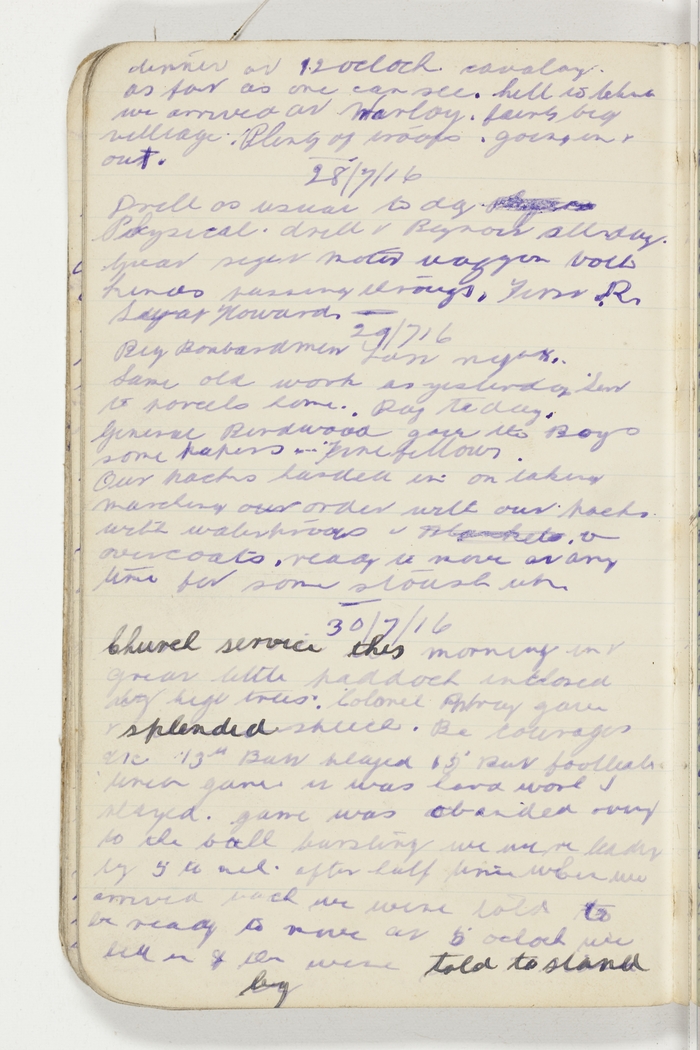 dinner at 12 oclock. cavalry.
as far as one can see. hell to
we arrived at Warloy. fairly big
village. Plenty of troops. going in &
out.
28/7/16
Drill as usual to day
Physical. drill & Bayonet all day.
Great sight motor waggon
passing through. First Rn
Howard.
29/7/16
Big Bombardmen last night.
Same old work as yesterday. Sent
parcels home. Pay to day.
General Birdwood gave the Boys
some papers - Fine fellows.
Our packs handed in on taking
marching our order with our packs
with waterproofs & blankets &
overcoats, ready to move at any
time for some stoush
30/7/16
Church service this morning in
great little paddock enclosed
by high trees. Colonel gave
splendid speech. Be courages
etc. 13th Batt played 15 Batt football.
game it was hard work I
played. game was abanded owing
to the ball bursting we were leading
by 5 to nil. after half time when we
arrived back we were told to
be ready to move at 5 oclock we
fell in & then were told to stand
by